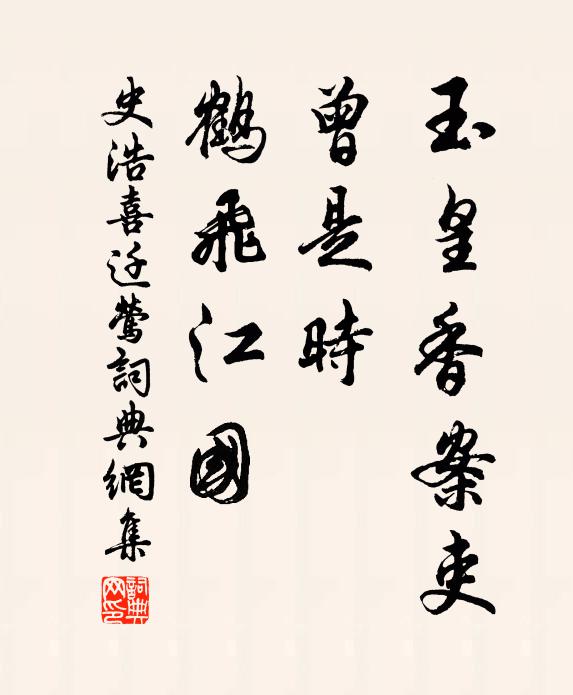 玉皇香案吏
曾是時
鶴飛江國
史浩喜迁鶯詞典網集
詞典网印